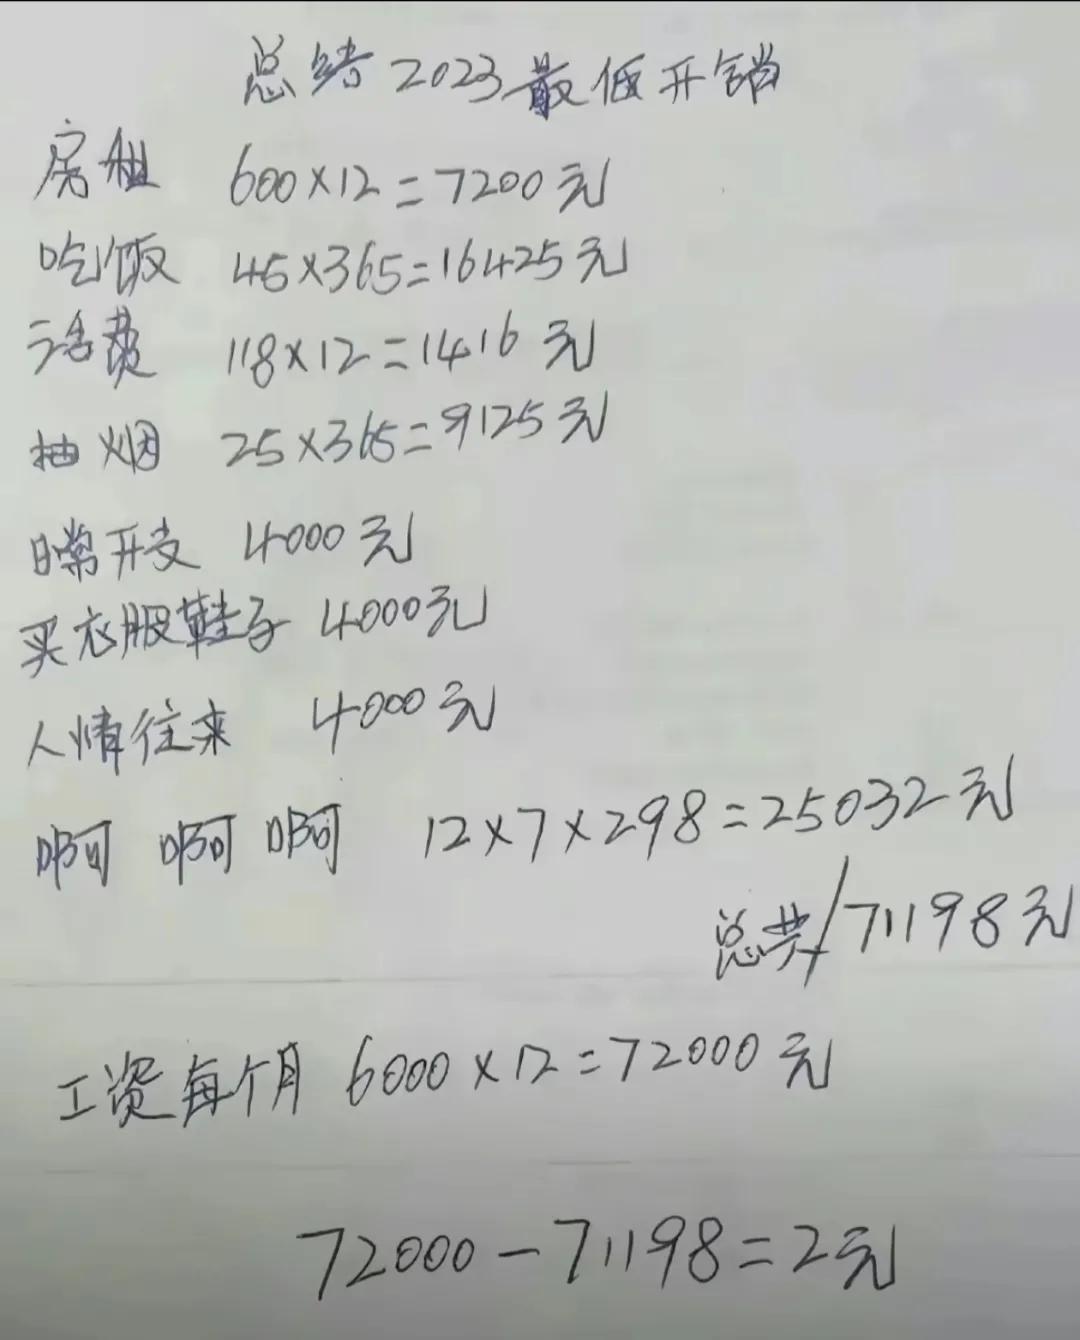 总结2023最低开销
房租 600×12=7200元
吃饭 45×365=16425元
话费 118×12=1416元
抽烟 25×365=9125元
日常开支 4000元
买衣服鞋子 4000元
人情往来 4000元
啊 啊 啊 12×7×298=25032元
总共/71198元
工资每个月 6000×12=72000元
72000-71198=2元